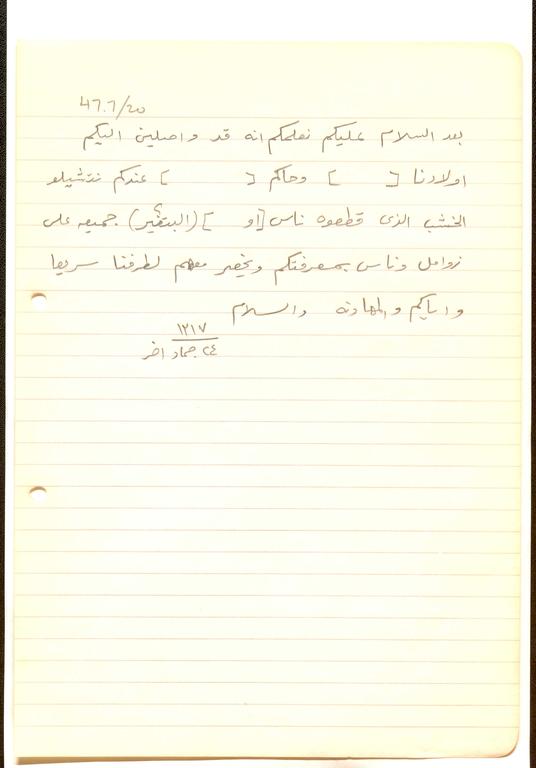 47.7/20
بعد السلام عليكم نعلمكم انه قد واصلين اليكم
اولادنا [ ] وحاكم [ ] عندكم
الخشب الذى قطعوه ناس [او ] ( ؟) جميعه على
زوامل وناس بمعرفتكم ويحضر معهم لطرفنا سريعا
واياكم والمهاونه والسلام
١٢١٧
٢٤ جماد اخر